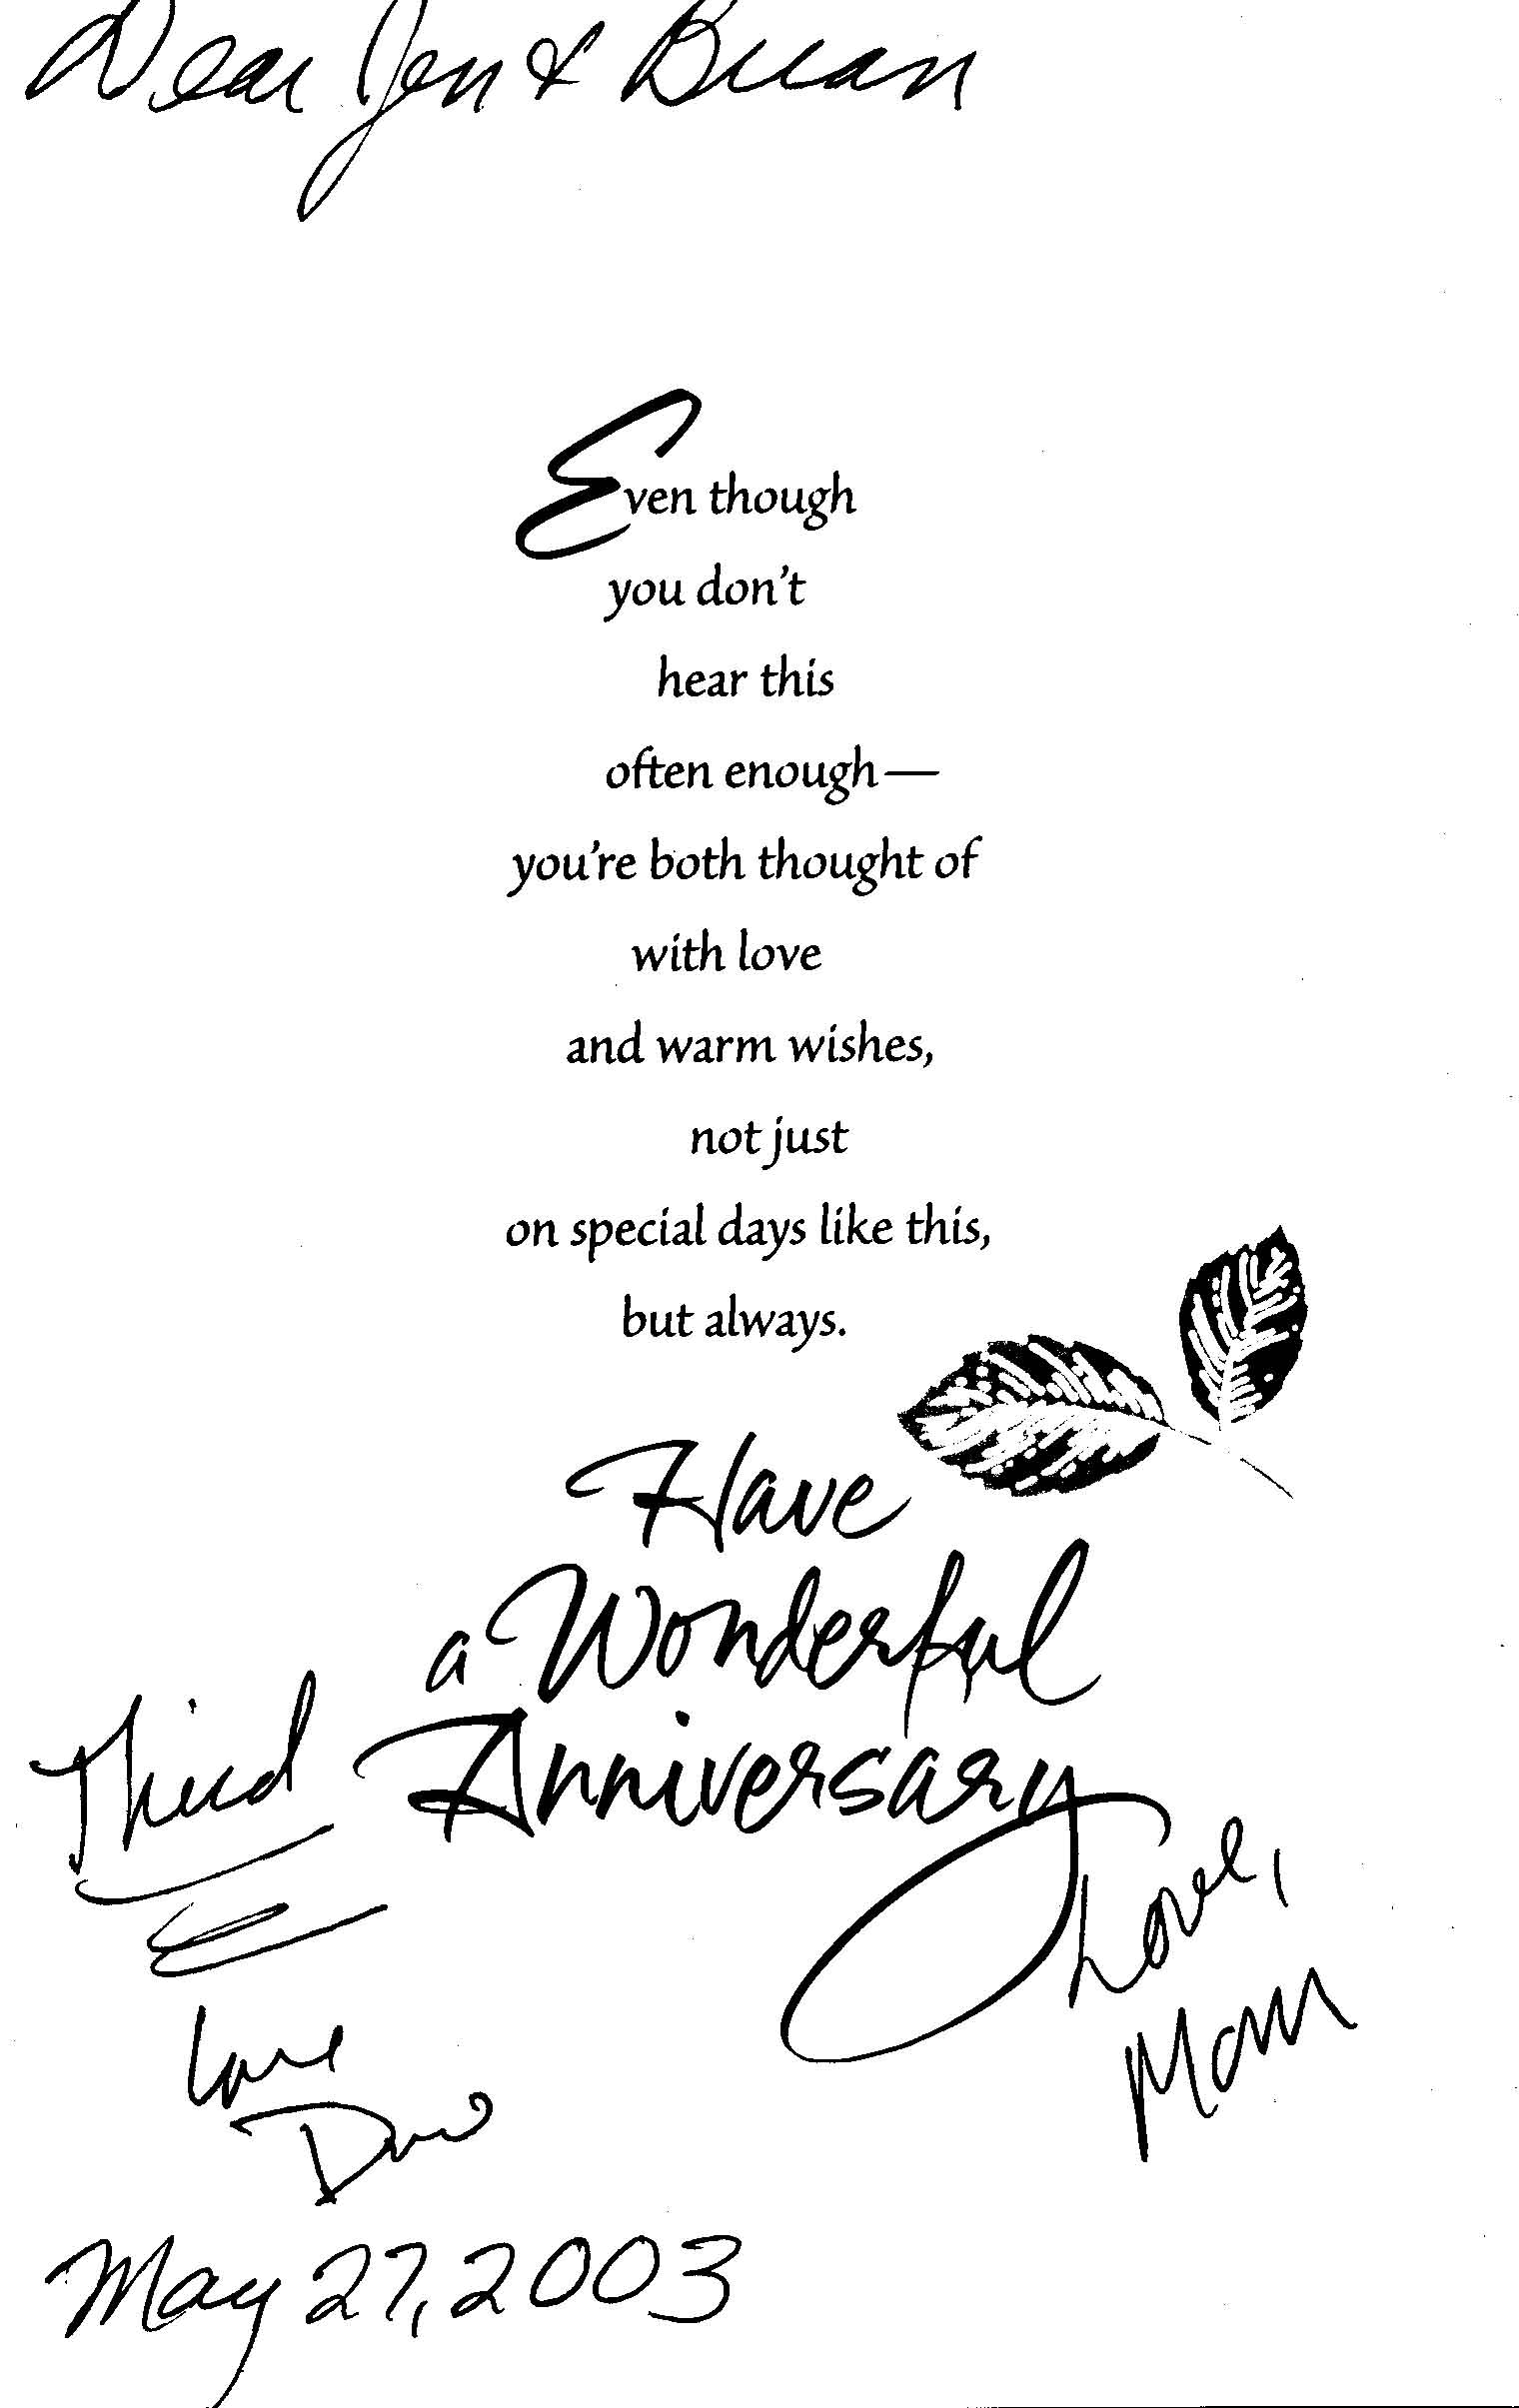 Dear Jen & Brian
Even though
you don't
hear this
often enough—
you're both thought of
with love
and warm wishes,
not just
on special days like this,
but always.
Have
a Wonderful
Third Anniversary
Love,
Mom
Love
May 27, 2003